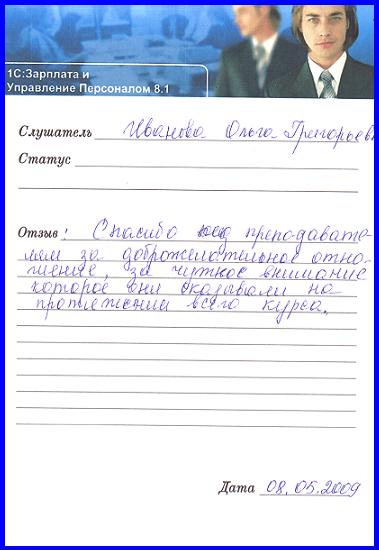 1С:Зарплата и
Управление Персоналом 8.1
Слушатель Иванова Ольга Григорьев
Статус
Отзыв: Спасибо преподавате-
лям за доброжелательное отно-
шение, за чуткое внимание
которое они оказывали на
протяжении всего курса.
Дата 08.05.2009